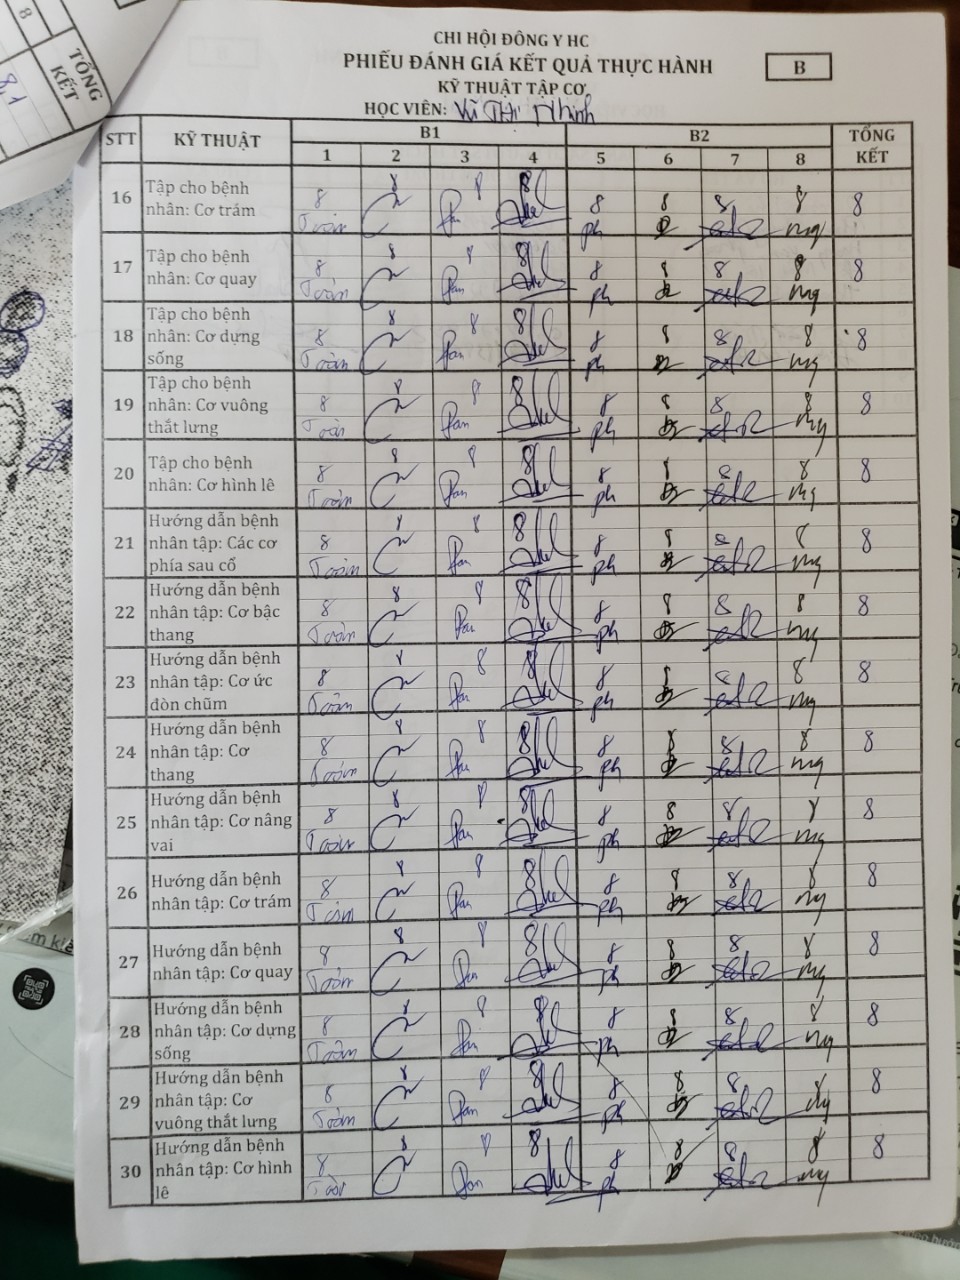 8
TỔNG
KẾT
8,1
CHI HỘI ĐÔNG Y HC
PHIẾU ĐÁNH GIÁ KẾT QUẢ THỰC HÀNH
B
KỸ THUẬT TẬP CƠ
HỌC VIÊN: Vũ Thị Nhinh
STT KỸ THUẬT B1 B2 TỔNG KẾT
1 2 3 4 5 6 7 8
16 Tập cho bệnh
nhân: Cơ trám
8 8 8 8 8 8 8 8 8
Toàn ph mg
17 Tập cho bệnh
nhân: Cơ quay
8 8 8 8 8 8 8 8 8
Toàn ph mg
18 Tập cho bệnh
nhân: Cơ dựng
sống
8 8 8 8 8 8 8 8 8
Toàn ph mg
19 Tập cho bệnh
nhân: Cơ vuông
thắt lưng
8 8 8 8 8 8 8 8 8
Toàn ph mg
20 Tập cho bệnh
nhân: Cơ hình lê
8 8 8 8 8 8 8 8 8
Toàn ph mg
21 Hướng dẫn bệnh
nhân tập: Các cơ
phía sau cổ
8 8 8 8 8 8 8 8 8
Toàn ph mg
22 Hướng dẫn bệnh
nhân tập: Cơ bậc
thang
8 8 8 8 8 8 8 8 8
Toàn ph mg
23 Hướng dẫn bệnh
nhân tập: Cơ ức
đòn chũm
8 8 8 8 8 8 8 8 8
Toàn ph mg
24 Hướng dẫn bệnh
nhân tập: Cơ
thang
8 8 8 8 8 8 8 8 8
Toàn ph mg
25 Hướng dẫn bệnh
nhân tập: Cơ nâng
vai
8 8 8 8 8 8 8 8 8
Toàn ph mg
26 Hướng dẫn bệnh
nhân tập: Cơ trám
8 8 8 8 8 8 8 8 8
Toàn ph mg
27 Hướng dẫn bệnh
nhân tập: Cơ quay
8 8 8 8 8 8 8 8 8
Toàn ph mg
28 Hướng dẫn bệnh
nhân tập: Cơ dựng
sống
8 8 8 8 8 8 8 8 8
Toàn ph mg
29 Hướng dẫn bệnh
nhân tập: Cơ
vuông thắt lưng
8 8 8 8 8 8 8 8 8
Toàn ph mg
30 Hướng dẫn bệnh
nhân tập: Cơ hình
lê
8 8 8 8 8 8 8 8 8
Toàn ph mg